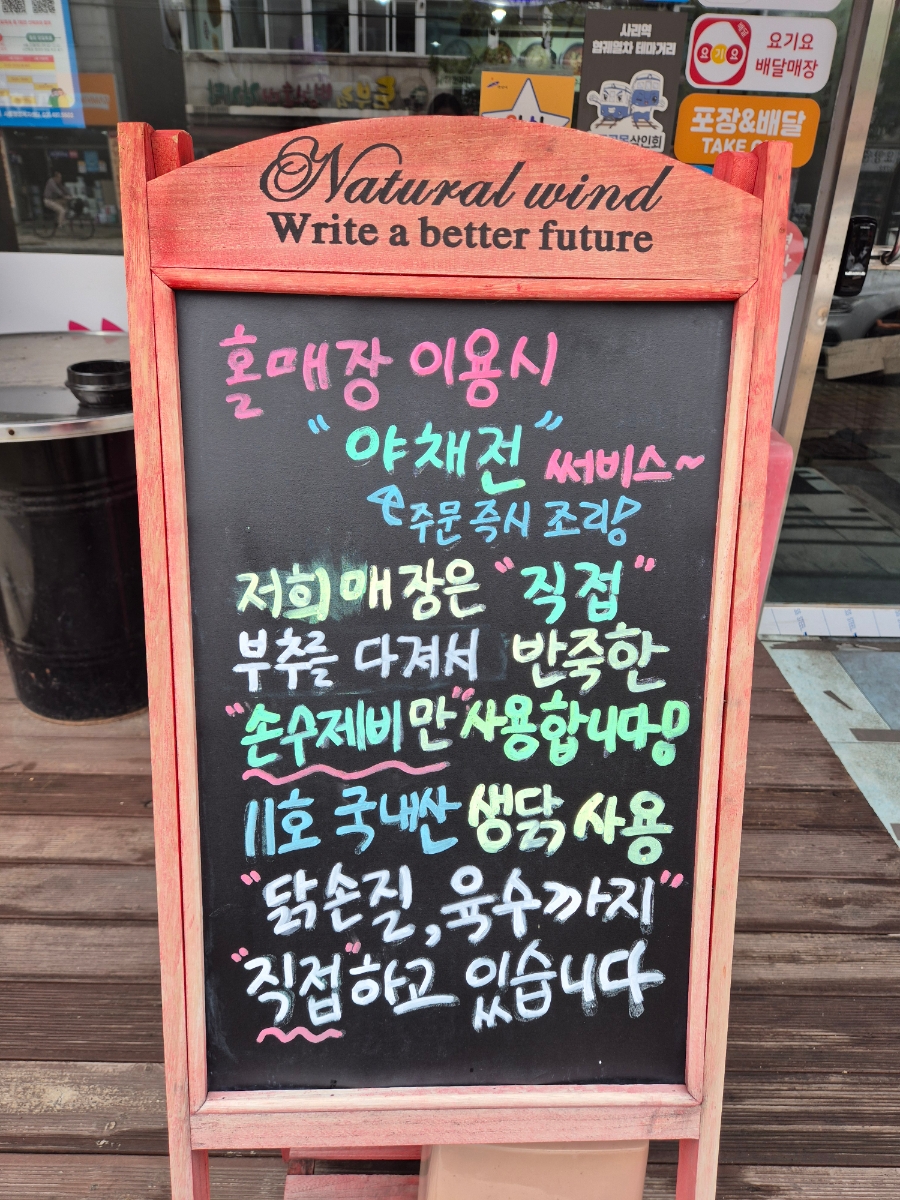 사리역
협궤열차 테마거리
요기요
요기요
배달매장
포장&배달
Natural wind
Write a better future
홀매장 이용시
"야채전" 써비스~
주문 즉시 조리!
저희 매장은 "직접"
부추를 다져서 반죽한
"손수제비만" 사용합니다!
11호 국내산 생닭 사용
"닭손질, 육수까지"
"직접"하고 있습니다